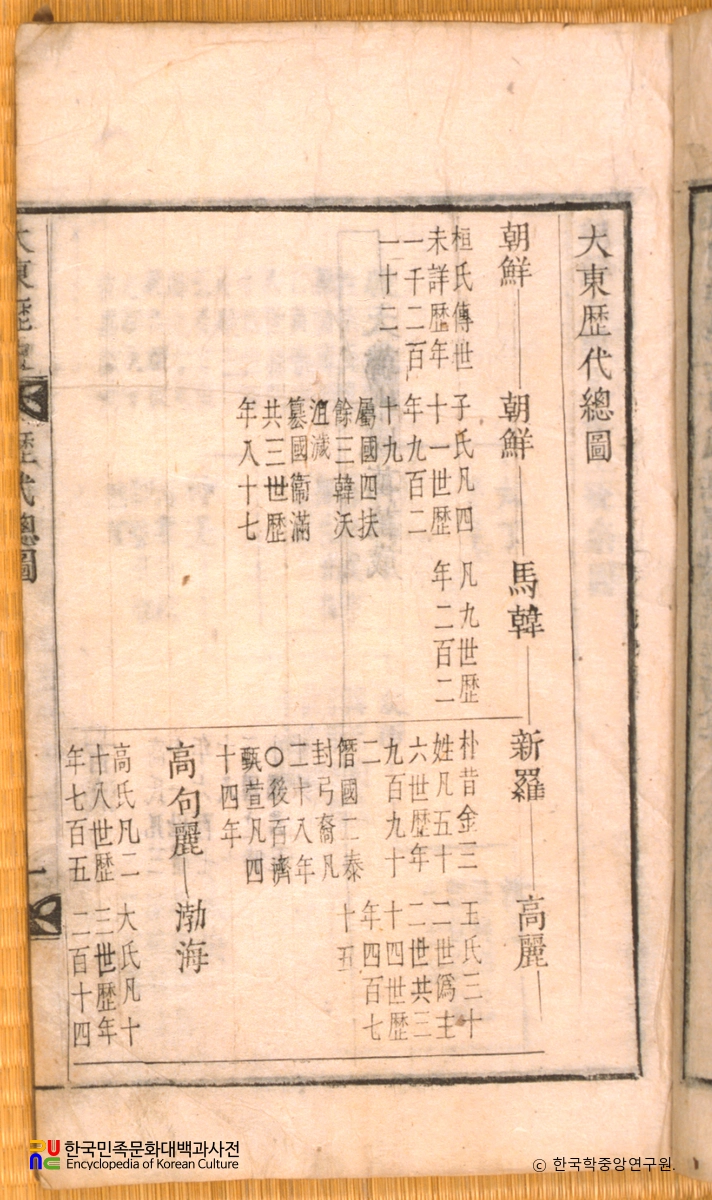 大東歷代總圖
朝鮮
桓氏傳世
未詳歷年
一千二百
一十二
朝鮮
子氏凡四
十一世歷
年九百二
十九
屬國四扶
餘三韓沃
沮濊
簒國衞滿
共三世歷
年八十七
馬韓
凡九世歷
年二百二
新羅
朴昔金三
姓凡五十
六世歷年
九百九十
二
僭國二泰
封弓裔凡
二十八年
〇後百濟
甄萱凡四
十四年
高麗
王氏三十
二世僞主
二世共三
十四世歷
年四百七
十五
高句麗
高氏凡二
十八世歷
年七百五
渤海
大氏凡十
三世歷年
二百十四
歷代總圖
一
한국민족문화대백과사전
Encyclopedia of Korean Culture
© 한국학중앙연구원.